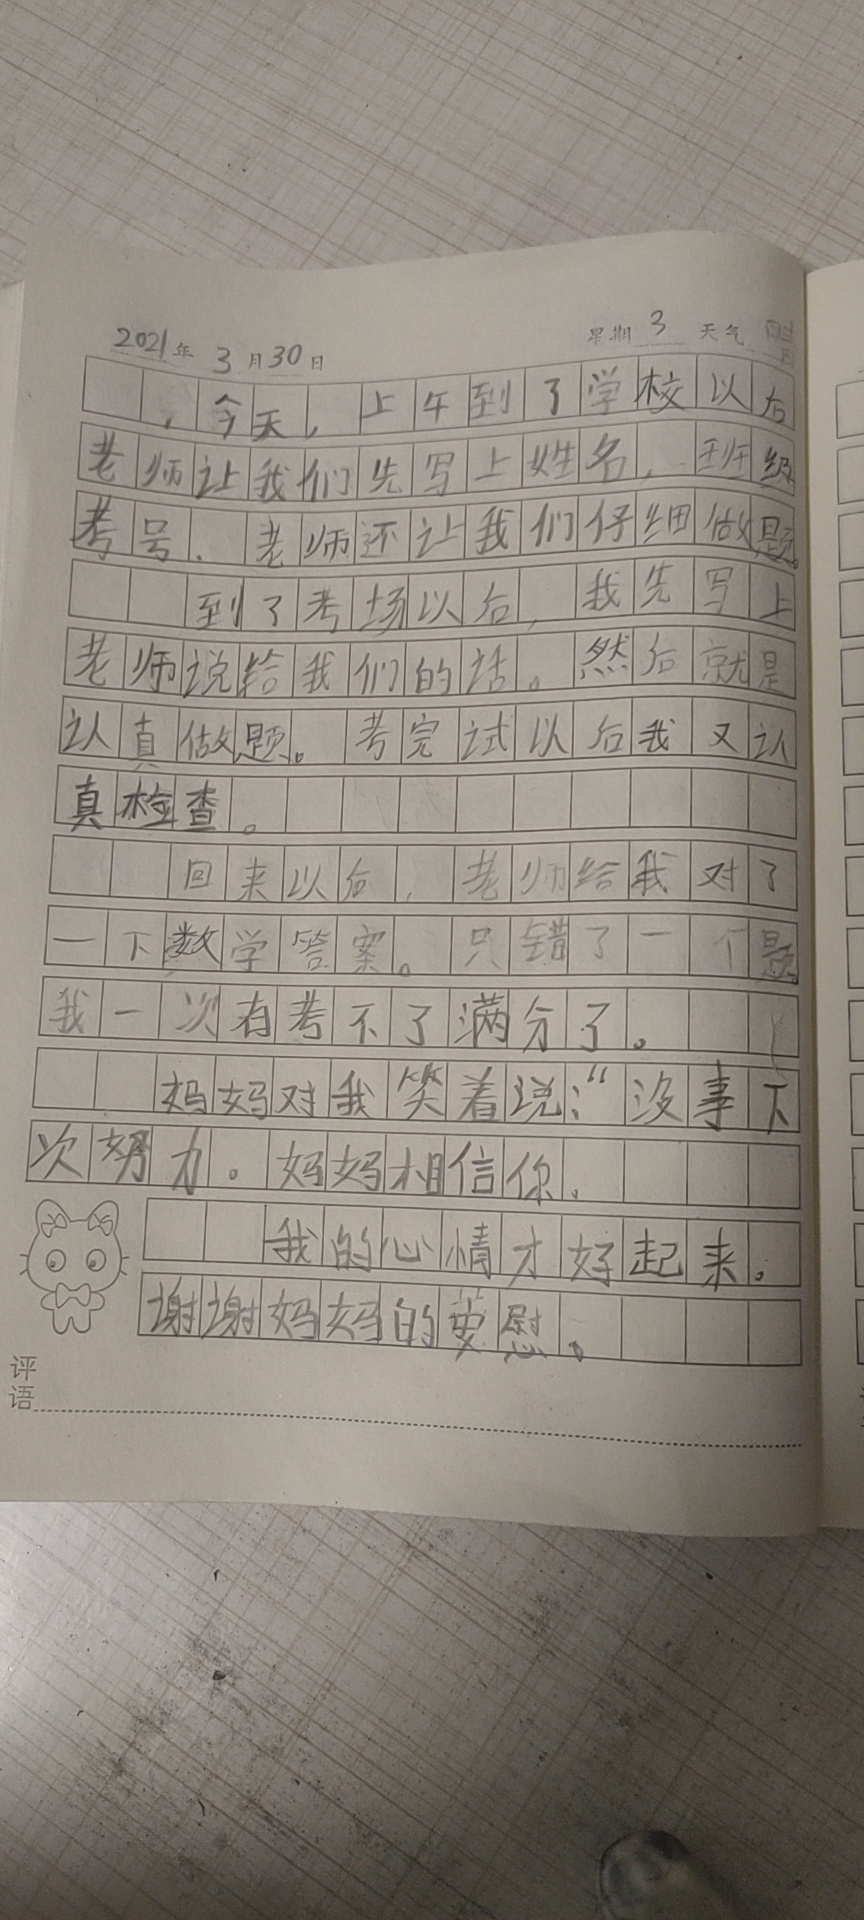 2021年 3月30日 星期 3 天气
，今天，上午到了学校以后
老师让我们先写上姓名，班级
考号．老师还让我们仔细做题
到了考场以后，我先写上
老师说给我们的话。然后就是
认真做题。考完试以后我又认
真检查。
回来以后，老师给我对了
一下数学答案。只错了一个题。
我一次有考不了满分了。
妈妈对我笑着说：“没事下
次努力。妈妈相信你．
我的心情才好起来。
谢谢妈妈的要慰。
评语